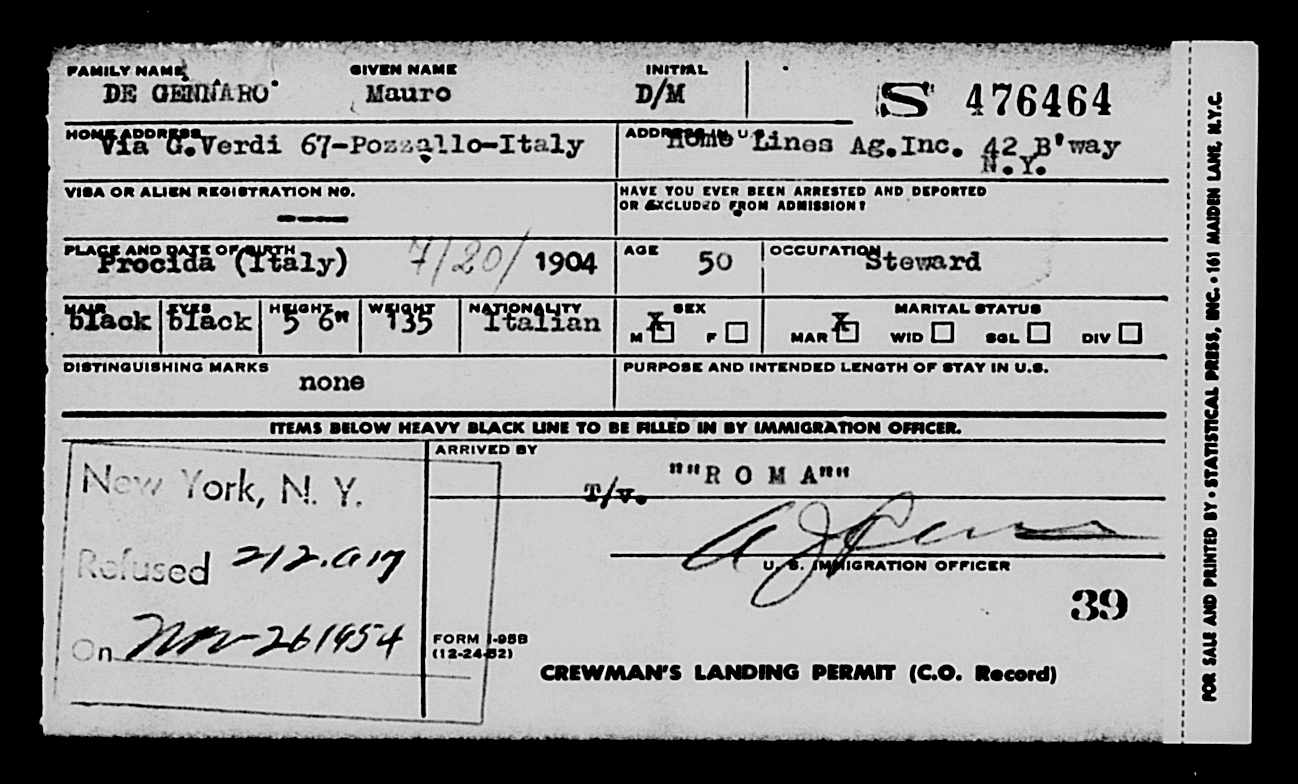 FAMILY NAME GIVEN NAME INITIAL
DE GENNARO Mauro D/M S 476464
HOME ADDRESS ADDRESS IN U.S.
Via G.Verdi 67-Pozzallo-Italy Home Lines Ag.Inc. 42 B'way
N.Y.
VISA OR ALIEN REGISTRATION NO. HAVE YOU EVER BEEN ARRESTED AND DEPORTED
OR EXCLUDED FROM ADMISSION?
PLACE AND DATE OF BIRTH AGE OCCUPATION
Procida (Italy) 7/20/ 1904 50 Steward
HAIR EYES HEIGHT WEIGHT NATIONALITY SEX MARITAL STATUS
black black 5 6" 135 Italian X X
M F MAR WID SGL DIV
DISTINGUISHING MARKS PURPOSE AND INTENDED LENGTH OF STAY IN U.S.
none
ITEMS BELOW HEAVY BLACK LINE TO BE FILLED IN BY IMMIGRATION OFFICER.
ARRIVED BY
T/v. ""R O M A""
U. S. IMMIGRATION OFFICER
39
New York, N. Y.
Refused 212.a17
On Nov-26 1954
FORM I-95B
(12-24-52)
CREWMAN'S LANDING PERMIT (C.O. Record)
FOR SALE AND PRINTED BY • STATISTICAL PRESS, INC. • 161 MAIDEN LANE, N.Y.C.